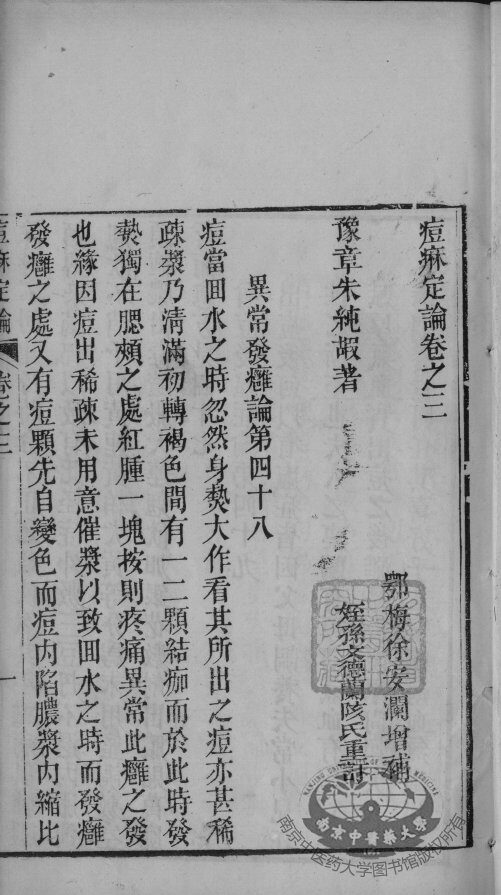 痘痳定論卷之三
豫章朱純嘏著
鄂梅徐安瀾增補
姪孫文德蘭陔氏重訂
異常發癰論第四十八
痘當囬水之時忽然身𤍠大作看其所出之痘亦甚稀
疎漿乃清滿初轉褐色間有一二顆結痂而於此時發
𤍠獨在腮頰之處紅腫一塊按則疼痛異常此癰之發
也緣因痘出稀疎未用意催漿以致囬水之時而發癰
發癰之處又有痘顆先自變色而痘內陷膿漿內縮比
痘痳定論
卷之三
一
南京中醫藥大學
NANJING UNIVERSITY OF CHINESE MEDICINE
南京中医药大学图书馆版权所有